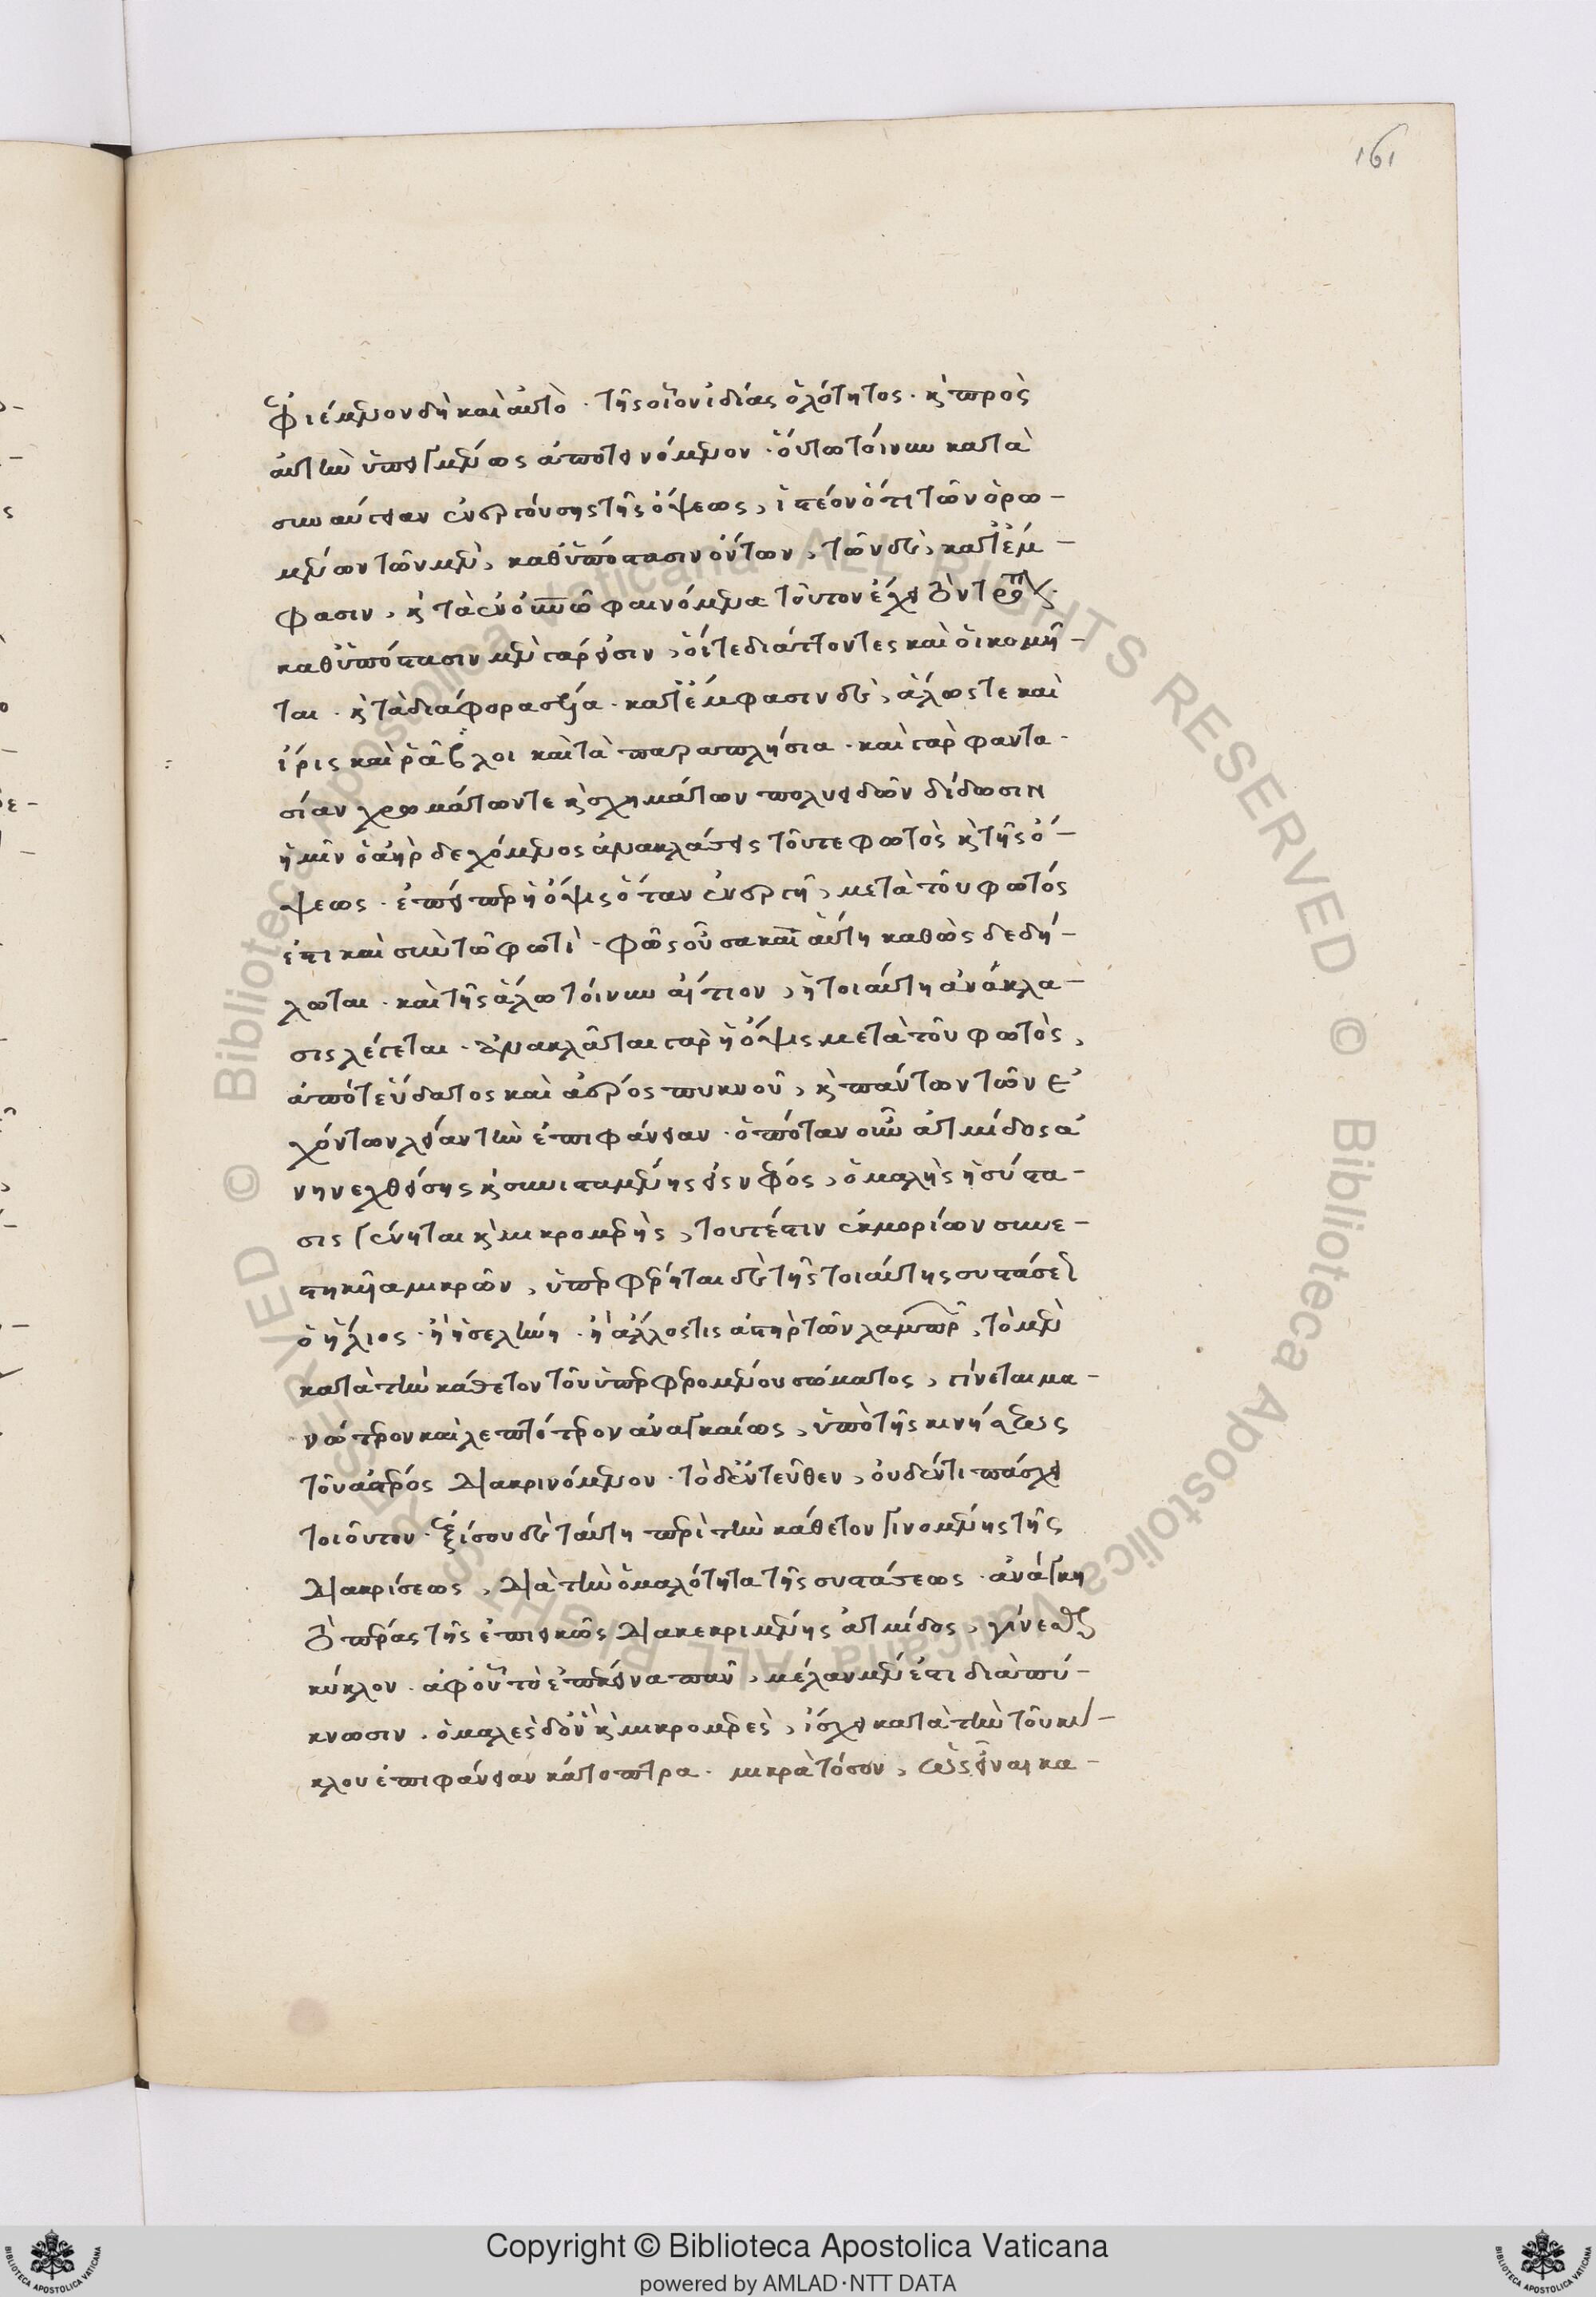 161
ἐφιέμενον δὴ καὶ αὐτὸ · τῆς οἷον ἰδίας ὁλότητος · καὶ πρὸς
αὐτὴν ὑπειγμένως ἀποτεινόμενον · οὕτω τοίνυν κατὰ
συναύγειαν ἐνεργούσης τῆς ὄψεως, ἰστέον ὅτι τῶν ὁρω-
μένων τῶν μὲν, καθ' ὑπόστασιν ὄντων, τῶν δὲ, κατ' ἔμ-
φασιν, καὶ τὰ ἐν οὐρανῷ φαινόμενα τοῦτον ἔχει τὸν τρόπον.
καθ' ὑπόστασιν μὲν γάρ εἰσιν, οἵ τε διάττοντες καὶ οἱ κομῆ-
ται · καὶ τὰ διάφορα · κατ' ἔμφασιν δὲ, ἅλως τε καὶ
ἶρις καὶ ῥάβδοι καὶ τὰ παραπλήσια · καὶ γὰρ φαντα-
σίαν χρωμάτων τε καὶ σχημάτων πολυειδῶν δίδωσιν
ἡμῖν ὁ ἀὴρ δεχόμενος ἀνακλάσεις τοῦ τε φωτὸς καὶ τῆς ὄ-
ψεως · ἐπείπερ ἡ ὄψις ὅταν ἐνεργῇ, μετὰ τοῦ φωτός
ἐστι καὶ σὺν τῷ φωτὶ · φῶς οὖσα καὶ αὐτὴ καθὼς δεδή-
λωται · καὶ τῆς ἅλω τοίνυν αἴτιον, ἡ τοιαύτη ἀνάκλα-
σις λέγεται · ἀνακλᾶται γὰρ ἡ ὄψις μετὰ τοῦ φωτὸς,
ἀπό τε ὕδατος καὶ ἀέρος πυκνοῦ, καὶ πάντων τῶν ἐ-
χόντων λείαν τὴν ἐπιφάνειαν · ὁπόταν οὖν ἀτμίδος ἀ-
νηνεχθείσης καὶ συνισταμένης εἰς νέφος, ὁμαλὴς ἡ σύστα-
σις γένηται καὶ μικρομερὴς, τουτέστιν ἐκ μορίων συνε-
στηκυῖα μικρῶν, ὑπερφέρηται δὲ τῆς τοιαύτης συστάσεως
ὁ ἥλιος · ἢ ἡ σελήνη · ἢ ἄλλος τις ἀστὴρ τῶν λαμπρῶν, τὸ μὲν
κατὰ τὴν κάθετον τοῦ ὑπερφερομένου σώματος, γίνεται μα-
νώτερον καὶ λεπτότερον ἀναγκαίως, ὑπὸ τῆς κινήσεως
τοῦ ἀστέρος διακρινόμενον · τὸ δ' ἐντεῦθεν, οὐδέν τι πάσχει
τοιοῦτον · ἐξίσου δὲ ταύτῃ περὶ τὴν κάθετον γινομένης τῆς
διακρίσεως, διὰ τὴν ὁμαλότητα τῆς συστάσεως · ἀνάγκη
τὸ πέρας τῆς ἐπιεικῶς διακεκριμένης ἀτμίδος, γίνεσθαι
κύκλον · ἀφ' οὗ τὸ ἐπέκεινα πᾶν, μέλαν μὲν ἔτι διὰ πύ-
κνωσιν · ὁμαλὲς δ' οὖν καὶ μικρομερὲς, ἴσχει κατὰ τὴν τοῦ κύ-
κλου ἐπιφάνειαν κάτοπτρα · μικρὰ τόσον, ὡς εἶναι κα-
Copyright © Biblioteca Apostolica Vaticana
powered by AMLAD·NTT DATA